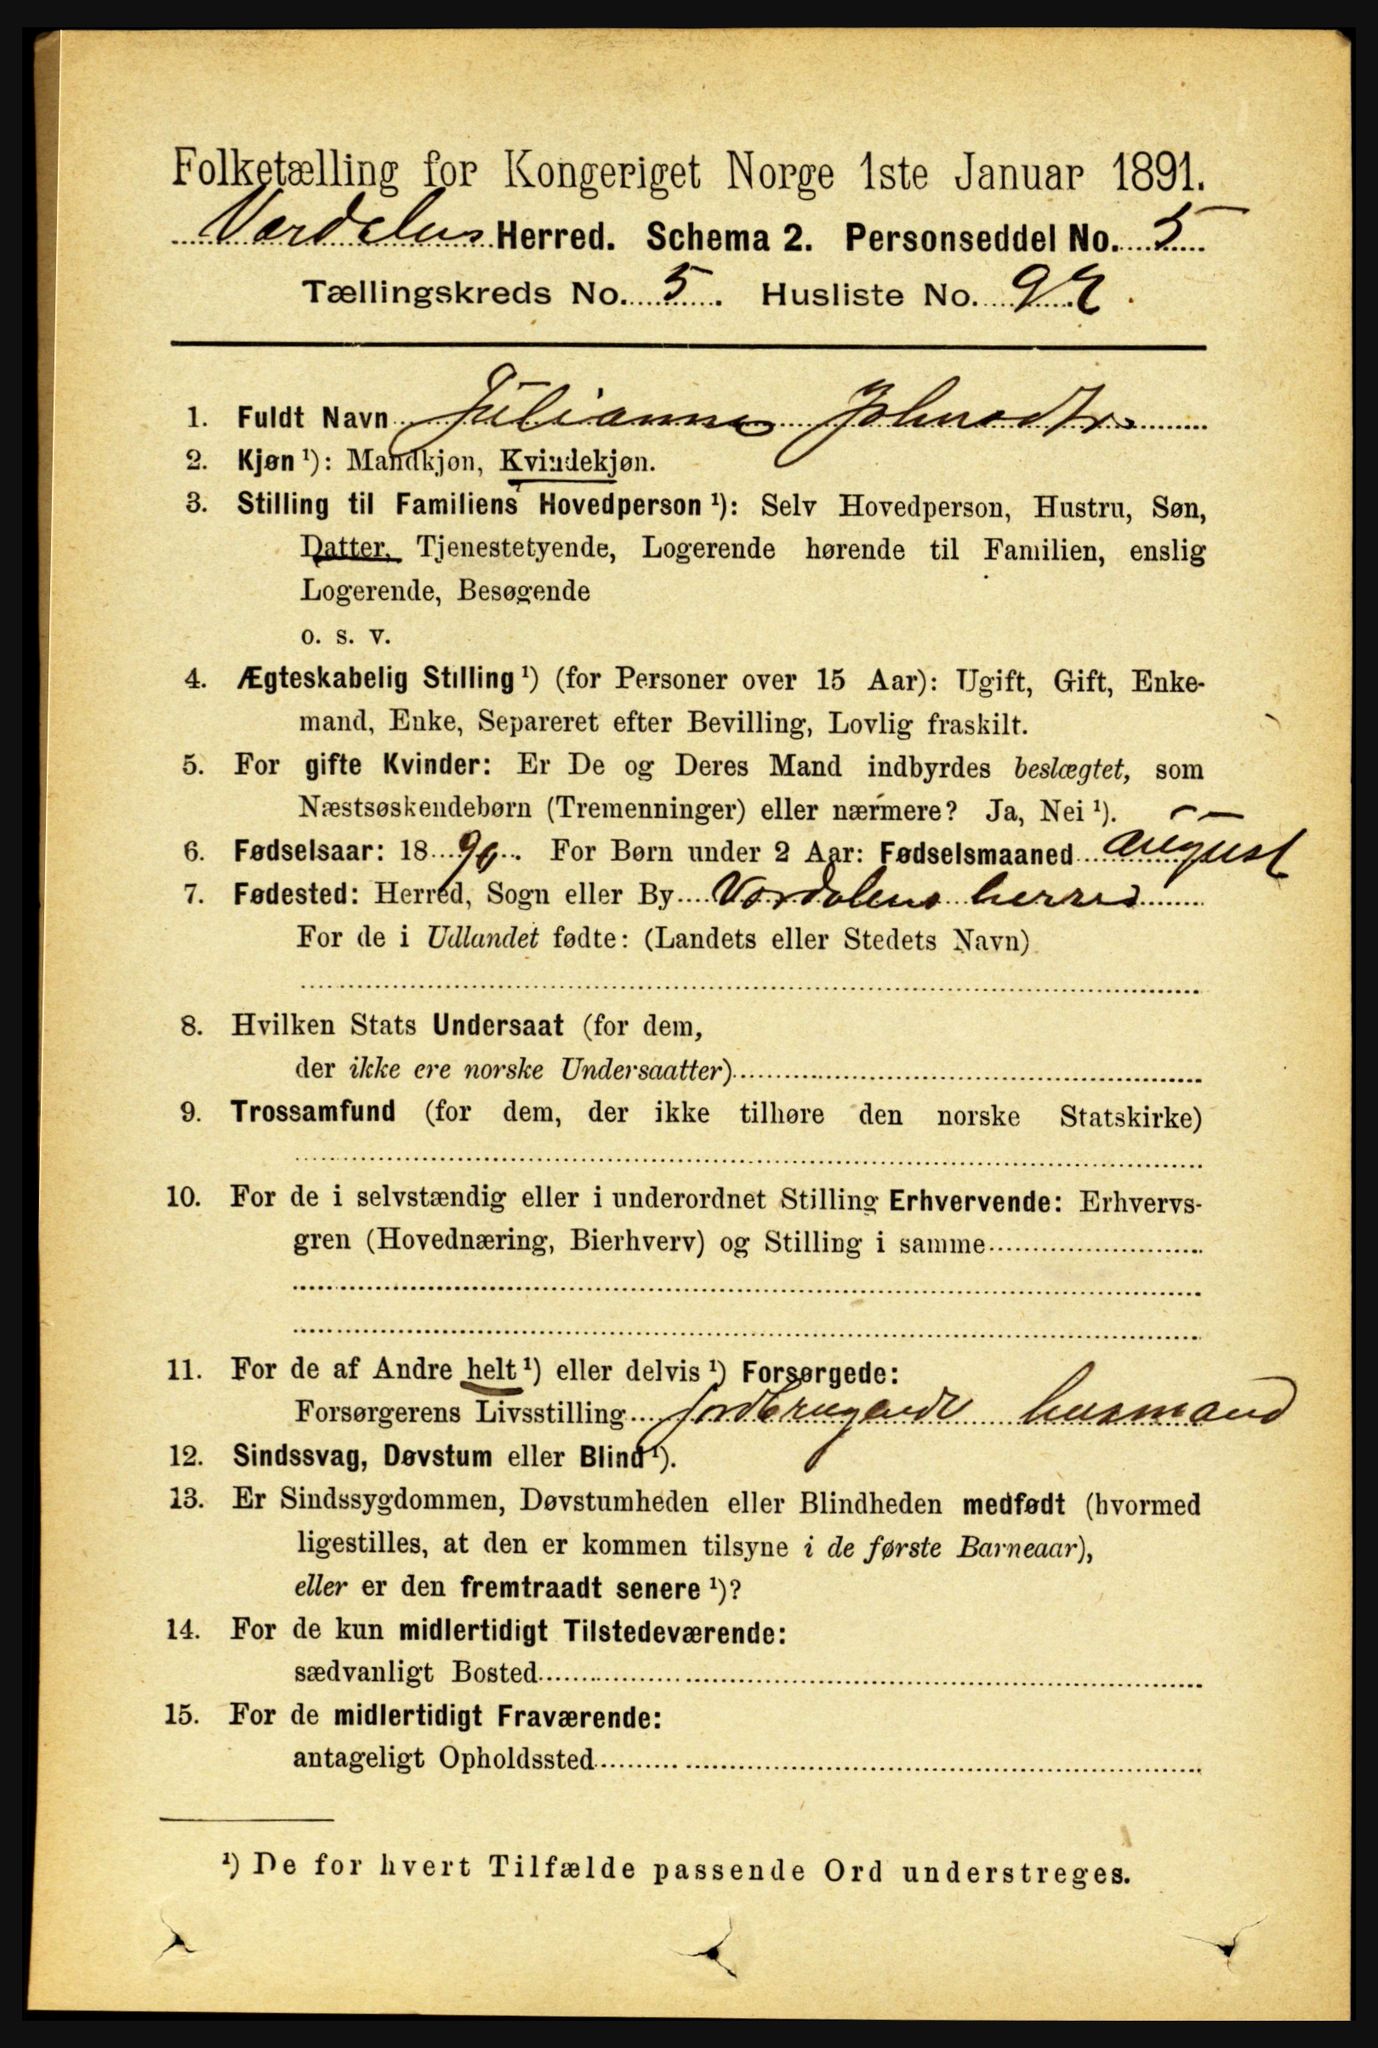 Folketælling for Kongeriget Norge 1ste Januar 1891.
Værdalens Herred. Schema 2. Personseddel No. 5
Tællingskreds No. 5. Husliste No. 92.
1. Fuldt Navn Julianna Johnsdtr
2. Kjøn ¹): Mandkjøn, Kvindekjøn.
3. Stilling til Familiens Hovedperson ¹): Selv Hovedperson, Hustru, Søn,
Datter, Tjenestetyende, Logerende hørende til Familien, enslig
Logerende, Besøgende
o. s. v.
4. Ægteskabelig Stilling ¹) (for Personer over 15 Aar): Ugift, Gift, Enke-
mand, Enke, Separeret efter Bevilling, Lovlig fraskilt.
5. For gifte Kvinder: Er De og Deres Mand indbyrdes beslægtet, som
Næstsøskendebørn (Tremenninger) eller nærmere? Ja, Nei ¹).
6. Fødselsaar: 1890. For Børn under 2 Aar: Fødselsmaaned august
7. Fødested: Herred, Sogn eller By Værdalens herred
For de i Udlandet fødte: (Landets eller Stedets Navn)
8. Hvilken Stats Undersaat (for dem,
der ikke ere norske Undersaatter)
9. Trossamfund (for dem, der ikke tilhøre den norske Statskirke)
10. For de i selvstændig eller i underordnet Stilling Erhvervende: Erhvervs-
gren (Hovednæring, Bierhverv) og Stilling i samme
11. For de af Andre helt ¹) eller delvis ¹) Forsørgede:
Forsørgerens Livsstilling jordbrugende husmand
12. Sindssvag, Døvstum eller Blind ¹).
13. Er Sindssygdommen, Døvstumheden eller Blindheden medfødt (hvormed
ligestilles, at den er kommen tilsyne i de første Barneaar),
eller er den fremtraadt senere ¹)?
14. For de kun midlertidigt Tilstedeværende:
sædvanligt Bosted
15. For de midlertidigt Fraværende:
antageligt Opholdssted
¹) De for hvert Tilfælde passende Ord understreges.